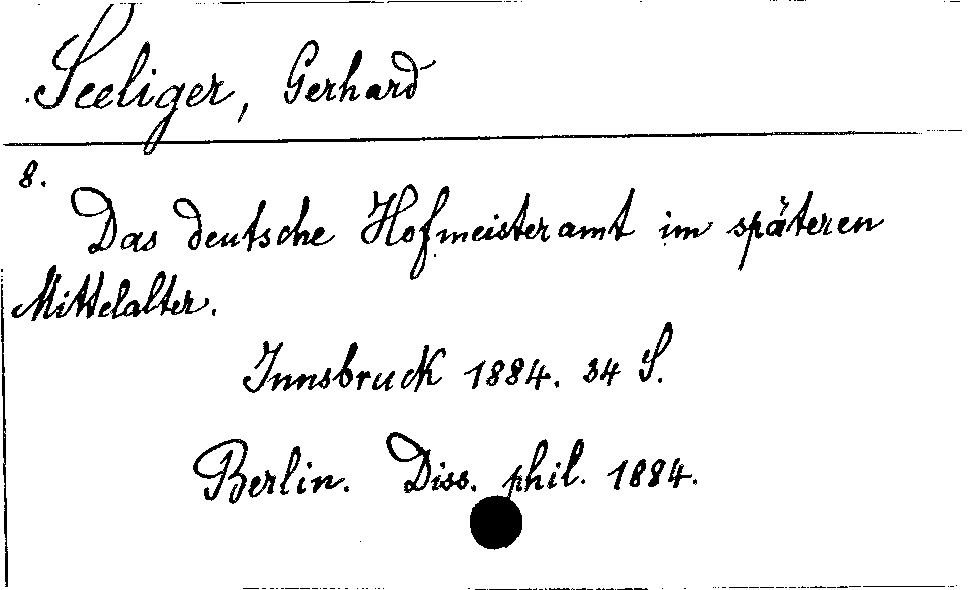 Seeliger, Gerhard
8.
Das deutsche Hofmeisteramt im späteren
Mittelalter.
Innsbruck 1884. 34 S.
Berlin. Diss. phil. 1884.